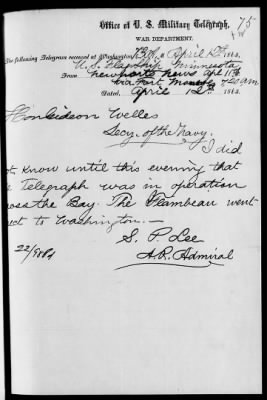 75
Office of U. S. Military Telegraph,
WAR DEPARTMENT.
The following Telegram received at Washington, M. April 12th 1863.
From U. S. Flagship Minnesota
Newports News Apl 11th
via Fort Monroe
Dated, April 12th 1863.
Hon Gideon Welles
Secy. of the Navy.
I did
ot know until this evening that
e Telegraph was in operation
ross the Bay. The Flambeau went
ect to Washington. —
S. P. Lee
A. R. Admiral